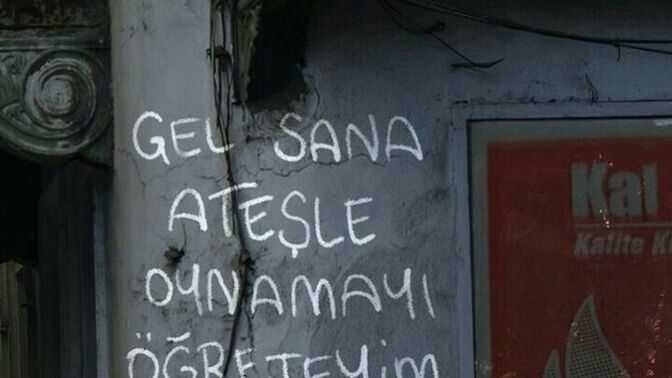 GEL SANA
ATEŞLE
OYNAMAYI
ÖĞRETEYİM
Kal
Kalite K